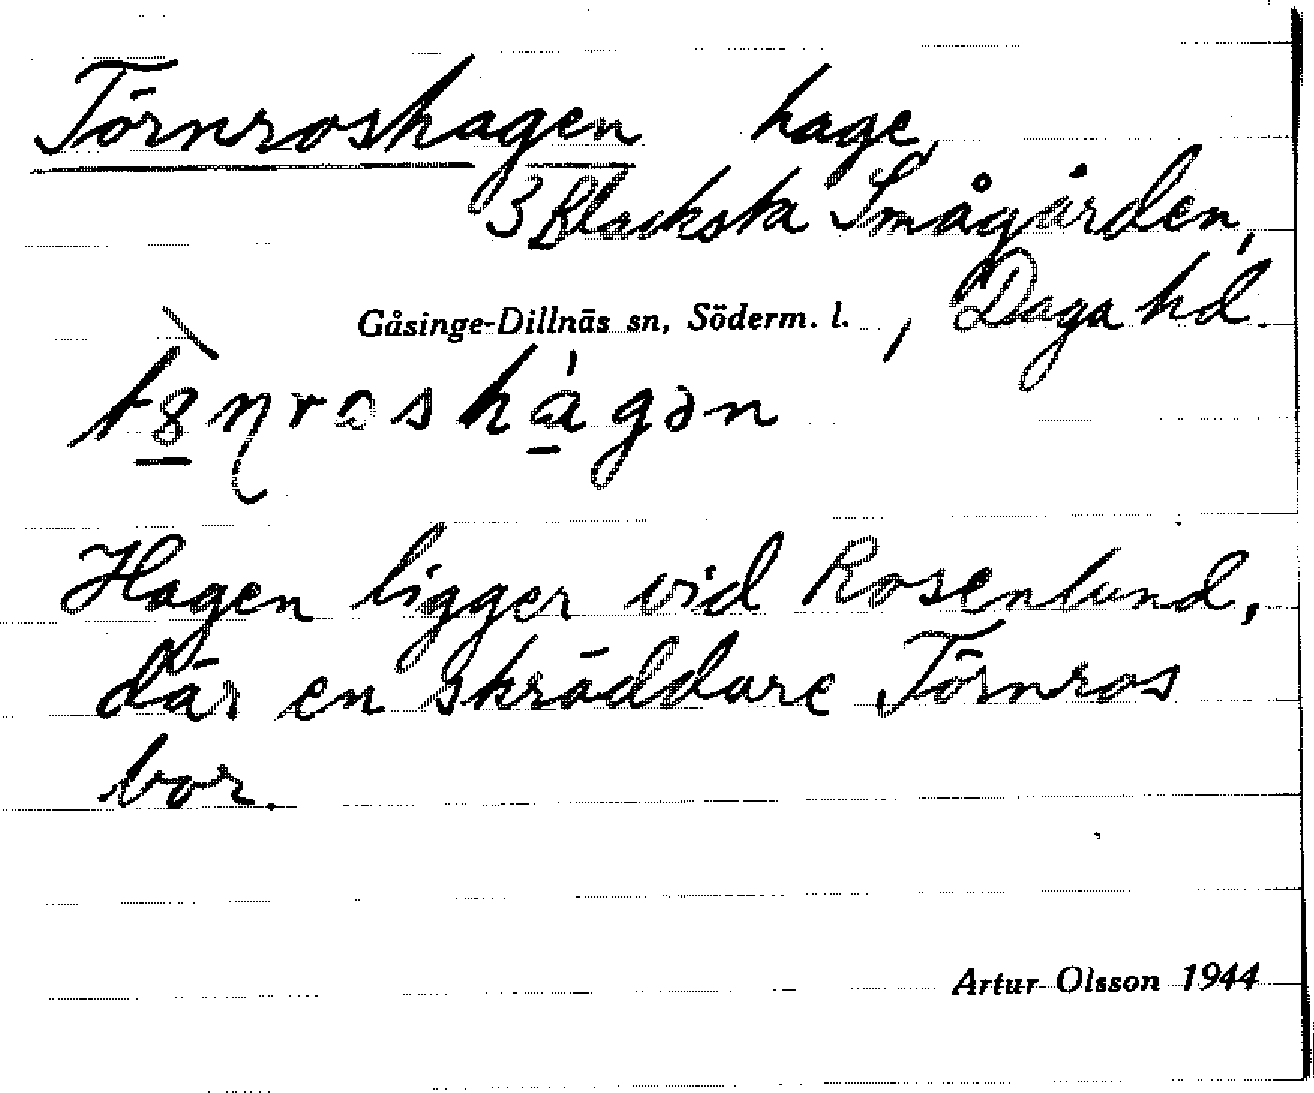 Törnroshagen hage,
3 Blacksta Smågården,
Gåsinge-Dillnäs sn, Söderm. l., Daga hd.
Hagen ligger vid Rosenlund,
där en skräddare Törnros
bor.
Artur Olsson 1944